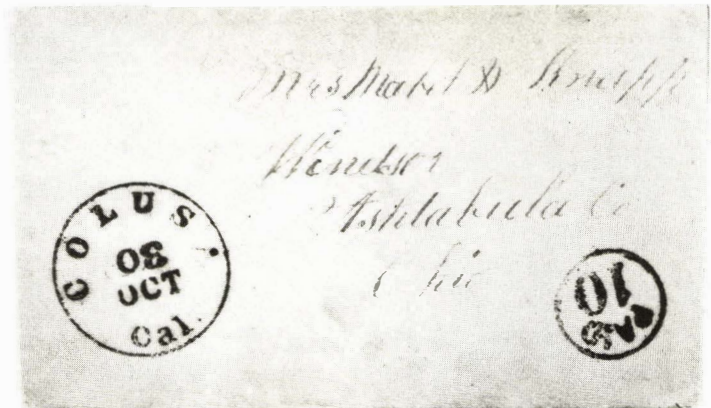 Mrs Mabel D Knapp
Windsor
Ashtabula Co
Ohio
COLUSI.
08
OCT
Cal.
PAID
10